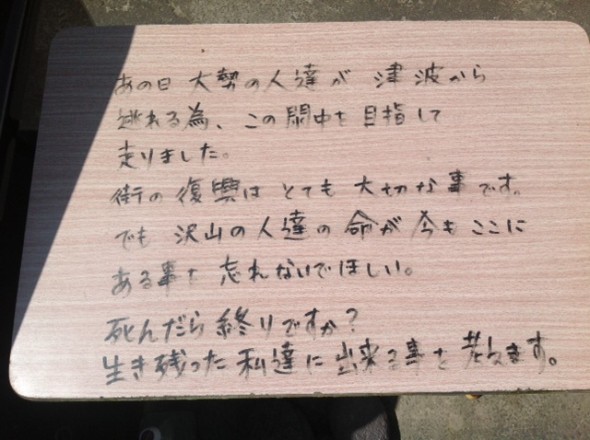 あの日 大勢の人達が 津波から
逃れる為、この閖中を目指して
走りました。
街の復興はとても大切な事です。
でも 沢山の人達の命が今もここに
ある事を忘れないでほしい。
死んだら終りですか?
生き残った私達に出来る事を考えます。